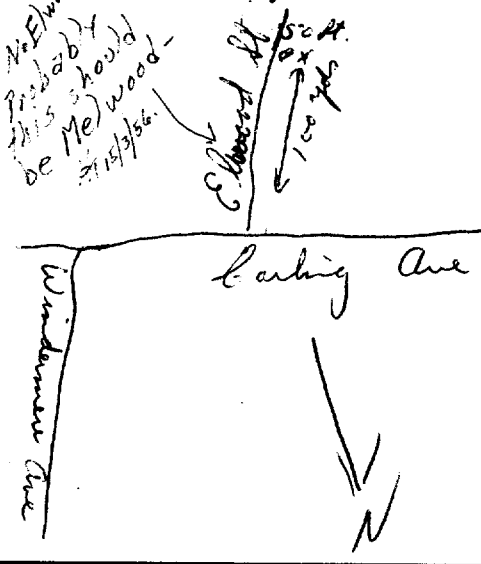 Probably
this should
be Melwood-
15/3/56.
Elwood St
50 ft.
100 yds
Carling Ave
Windermere Ave
N